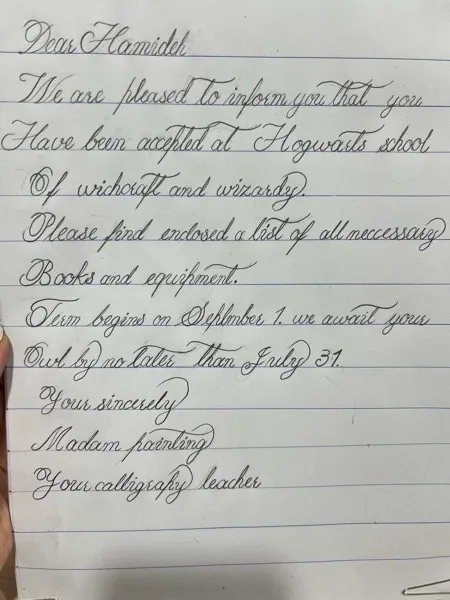 Dear Hamideh
We are pleased to inform you that you
Have been accepted at Hogwarts school
Of wichcraft and wizardy.
Please find enclosed a list of all neccessary
Books and equipment.
Term begins on Septmber 1. we await your
Owl by no later than July 31.
Your sincerely
Madam painting
Your calligrapy teacher